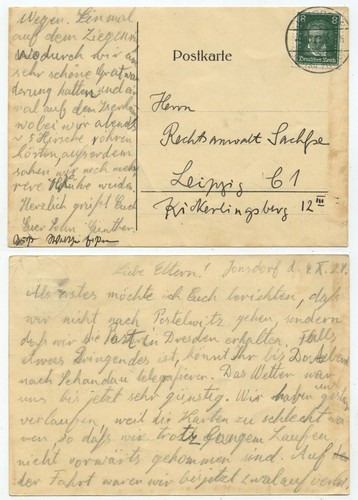 Wegen. Einmal
auf dem Ziegen
wodurch wir
sehr schöne Gratwan
derung hatten und
mal auf dem
wobei wir abends
5 Hirsche röhren
hörten, außerdem
sahen wir noch meh
rere
Herzlich grüßt Euch
Euer Sohn Günther
Postkarte
8
Deutsches Reich
Herrn
Rechtsanwalt Sachße
Leipzig C1
Kickerlingsberg 12 III
Liebe Eltern! Jonsdorf d. 4. X. 27.
Als erstes möchte ich Euch berichten, daß
wir nicht nach Postelwitz gehen, sondern
daß wir die Post in Dresden erhalten. Falls
etwas dringendes ist, könnt Ihr bis
nach Schandau telegrafieren. Das Wetter war
uns bis jetzt sehr günstig. Wir haben uns
verlaufen, weil die Karten zu schlecht wa
ren, so daß wir trotz langem Laufen
nicht vorwärts gekommen sind. Auf
der Fahrt waren wir bis jetzt 2 mal auf